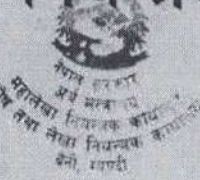 नेपाल सरकार
अर्थ मन्त्रालय
महालेखा नियन्त्रक कार्यालय
तथा लेखा नियन्त्रक कार्यालय
बेनी, म्याग्दी